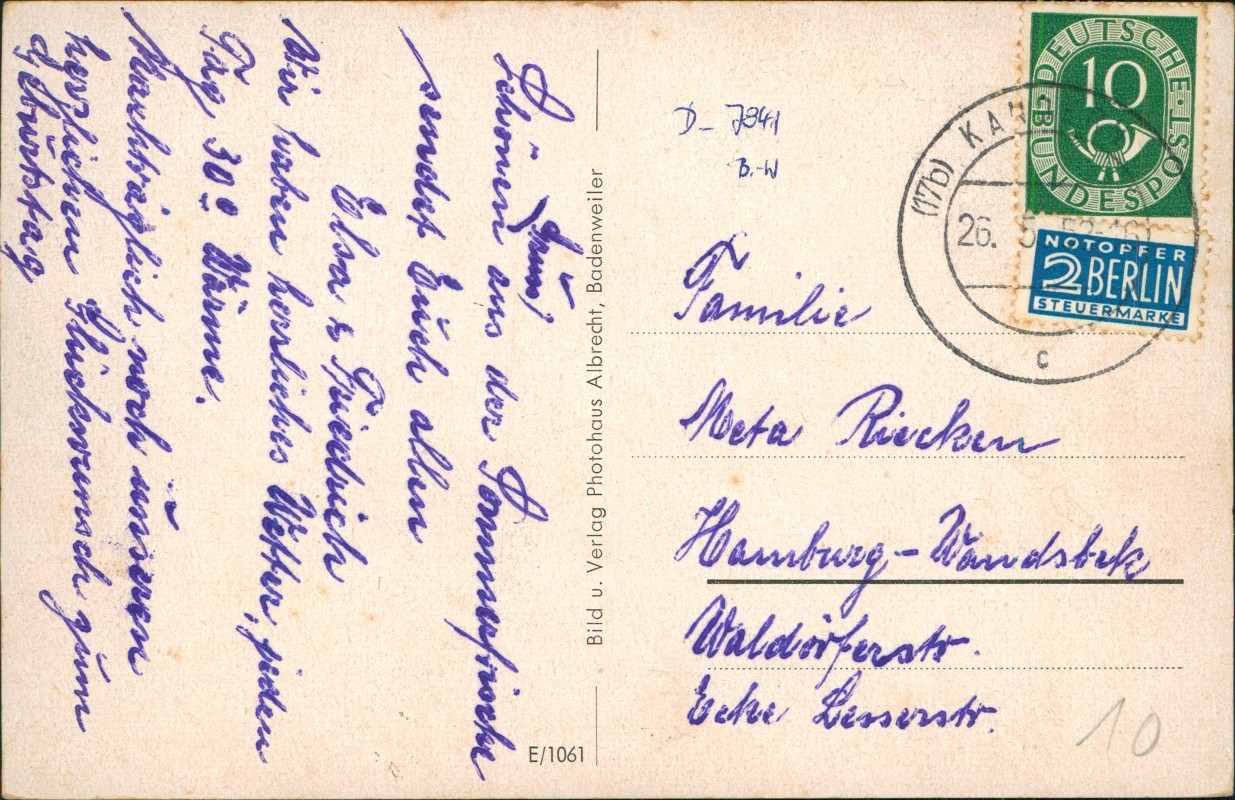 Schönen Gruß,
aus der Sommerfrische
sendet Euch allen
Elsa u Friedrich
Wir haben herrliches Wetter, jeden
Tag 30° Wärme.
Nachträglich noch unseren
herzlichen Glückwunsch zum
Geburtstag
Bild u. Verlag Photohaus Albrecht, Badenweiler
E/1061
D- 7841
B.-W
DEUTSCHE BUNDESPOST
10
(17b) KAN
26. 5. 52-16
c
NOTOPFER
2 BERLIN
STEUERMARKE
Familie
Meta Riecken
Hamburg-Wandsbek
Waldörferstr.
Ecke Lesserstr.
10